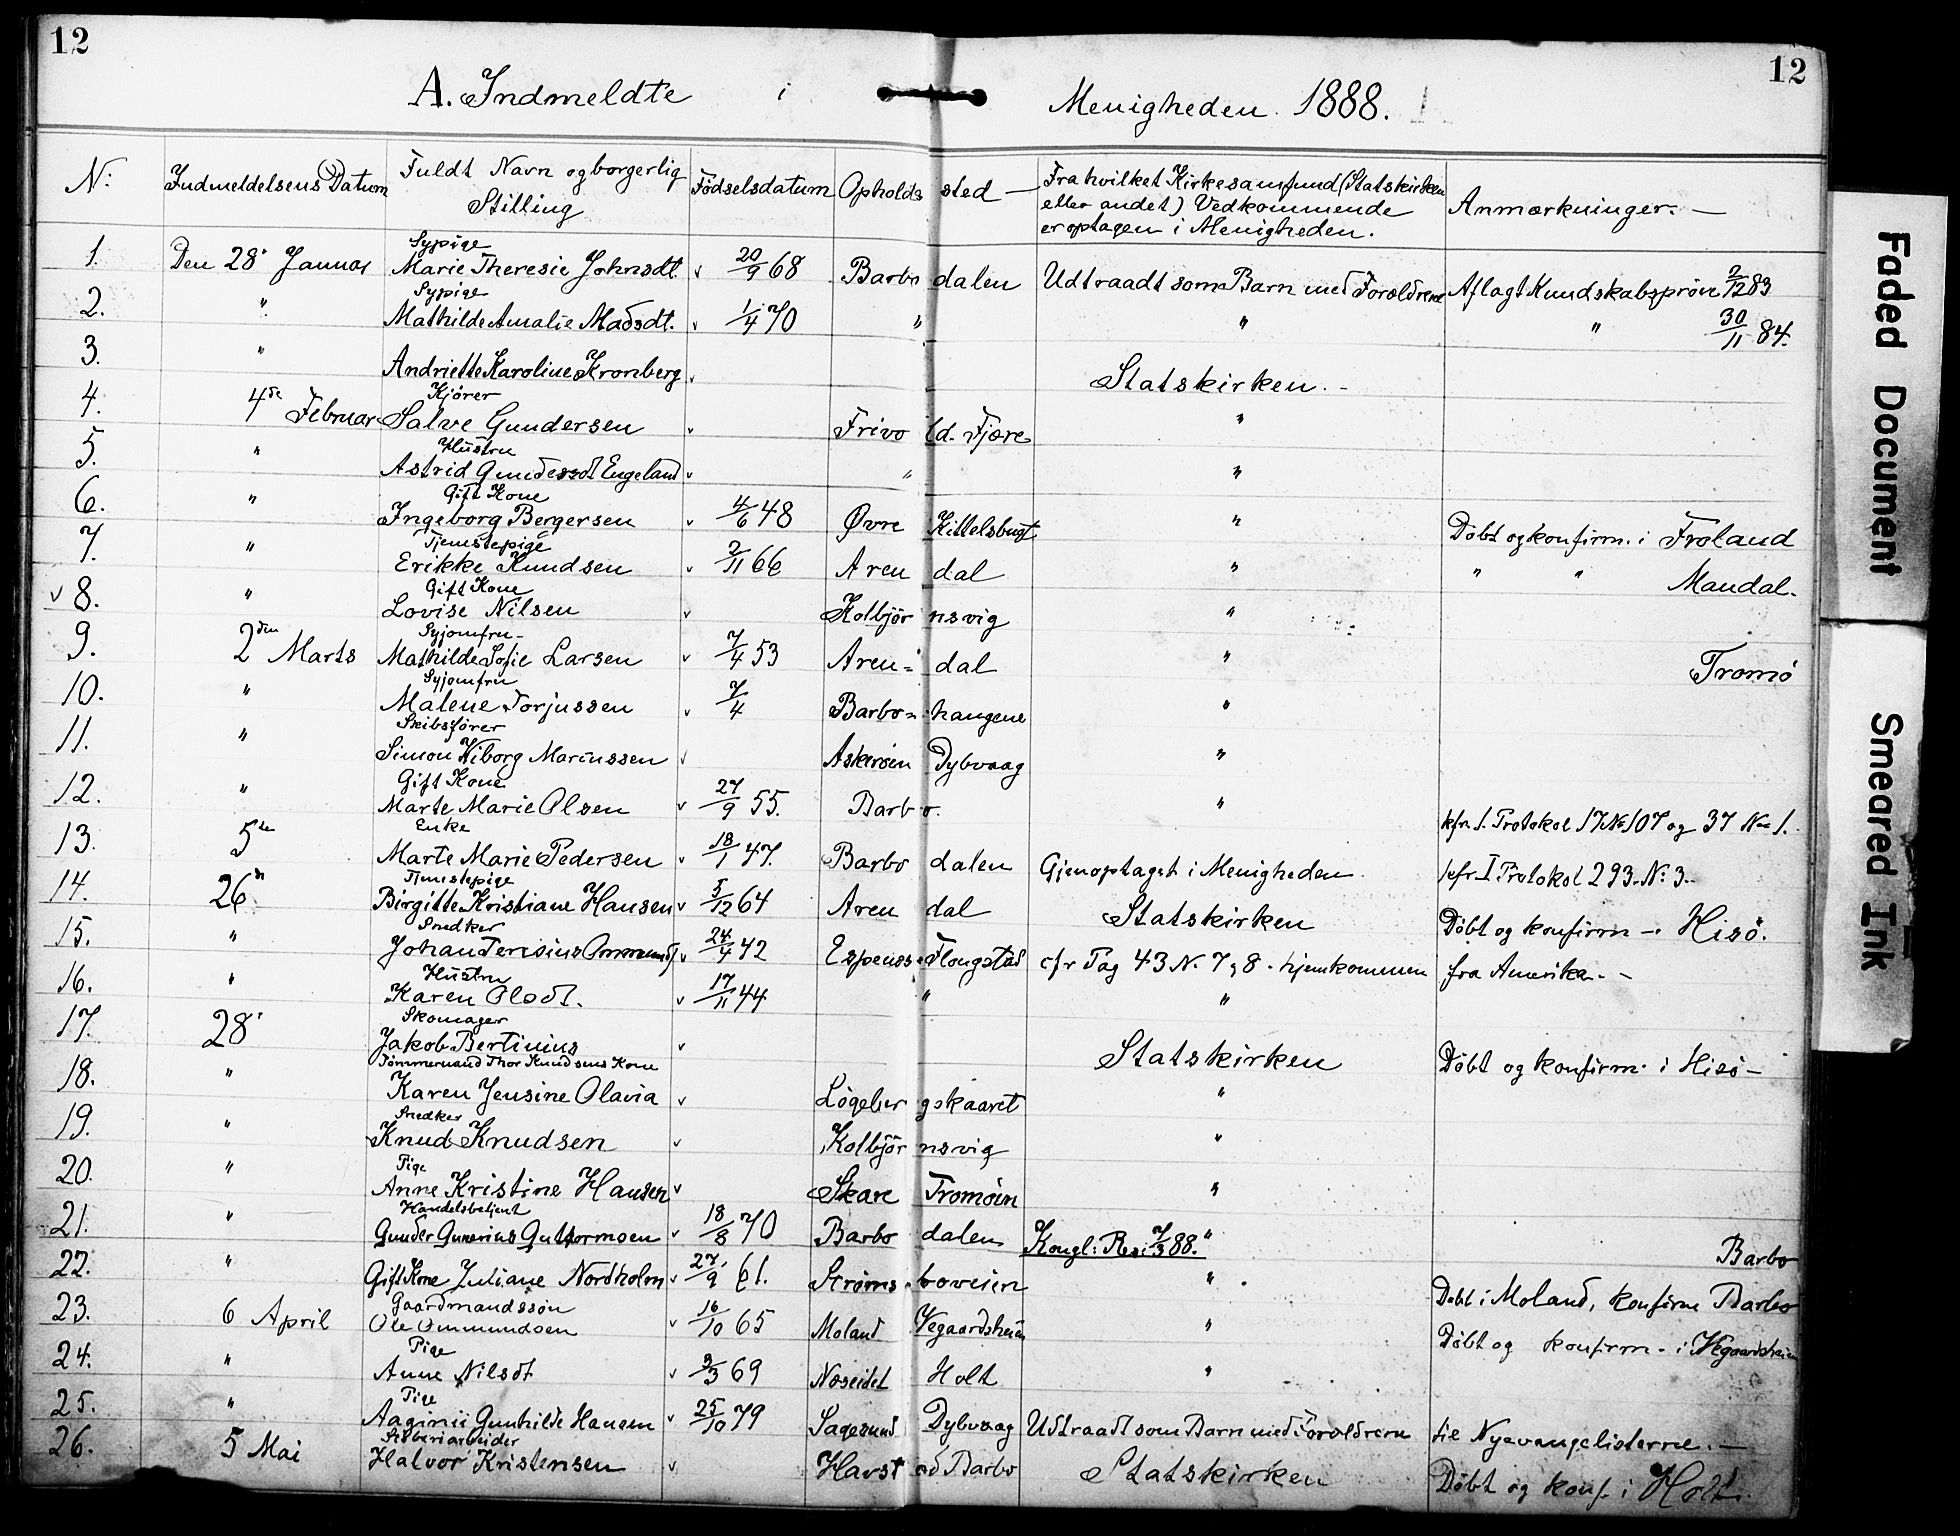 12
12
A. Indmeldte i Menigheden 1888.
N: Indmeldelsens Datum Fuldt Navn og borgerlig Stilling Fødselsdatum Opholdssted — Fra hvilket Kirkesamfund (Statskirken eller andet) Vedkommende er optagen i Menigheden. Anmærkninger. —
Sypige
1. Den 28' Januar Marie Theresie Johnsdt. v 20/9 68 Barbodalen Udtraadt som Barn med Forældrene Aflagt Kundskabsprøve 2/12 83
Sypige
2. " Mathilde Amalie Madsdt. v 1/4 70 " " " 30/11 84.
3. " Andriette Karoline Kronberg v Statskirken. -
Kjører
4. 4de Februar Salve Gundersen v Frivold. Fjære "
Hustru
5. " Astrid Gundersdt Engeland v " "
Gift Kone
6. " Ingeborg Bergersen v 4/6 48 Øvre Kittelsbugt " Döbt og konfirm. i Froland
Tjenstepige
7. " Erikke Knudsen v 2/11 66 Arendal " " " Mandal.
Gift Kone
v 8. " Lovise Nilsen v Kolbjörnsvig "
Syjomfru -
9. 2den Marts Mathilde Sofie Larsen v 7/4 53 Aren=dal " Tromö
Syjomfru
10. " Malene Torjussen v 7/4 Barbo=hangene "
Skibsfører
11. " Simon Wiborg Mariussen v Askerøen Dybvaag "
Gift Kone
12. " Marte Marie Olsen v 27/9 55. Barbo. " kfr. 1. Protokol 17 № 107 og 37 No 1.
Enke
13. 5te Marte Marie Pedersen v 18/1 47. Barbodalen Gjenoptaget i Menigheden kfr I Protokol 293. N: 3.
Tjenestepige
14. 26de Birgitte Kristiane Hansen v 5/12 64 Arendal Statskirken Döbt og konfirm - i Hisö.
Snedker
15. " Johan v 24/4 42 Flongstad cfr Pag 43 N. 7 & 8. hjemkommen fra Amerika. -
Hustru
16. " Karen Olsdt. v 17/11 44 " "
Skomager
17. 28' Jakob Bertinius v Statskirken Döbt og konfirm. i Hisö -
Tömmermand Thor Knudsens Kone
18. " Karen Jensine Olavia v Lögebergskaaret "
Snedker
19. " Knud Knudsen v Kolbjörnsvig "
Pige
20. " Anne Kristine Hansen v Skare Tromöen "
Handelsbetjent
21. " Gunder Gunerius Guttormsen v 18/8 70 Barbodalen Kongl: Res: 7/3 88. " Barbo
22. " Gift Kone Juliane Nordholm v 27/9 61. Strömsboveien " Döbt i Moland, konfirm Barbo
Gaardmandssön
23. 6 April Ole Ommundsen v 16/10 65 Moland Vegaardsheien " Döbt og konfirm - i Vegaardsheien
Pige
24. " Anne Nilsdt v 3/3 69 Næseidet Holt "
Pige
25. " Gunhilde Hansen v 25/10 79 Sagesund Dybvaag Udtraadt som Barn med Forældrene til Nyevangelisterne. —
26. 5 Mai Halvor Kristensen v Havstad Barbo Statskirken Döbt og konf. i Holt.
Faded Document
Smeared Ink